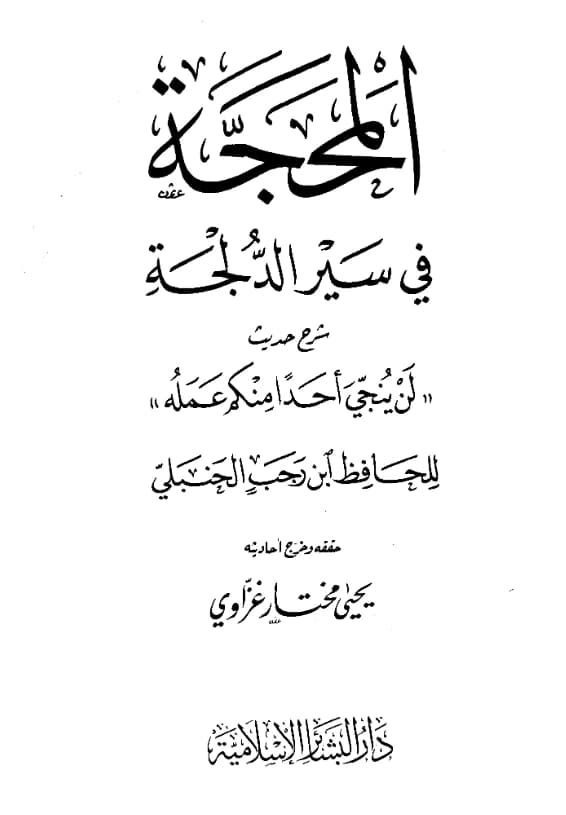 المَحَجَّة
في سَيْر الدُّلْجَةِ
شرح حديث
«لَنْ يُنجّيَ أحَدًا مِنْكم عَمَلُه»
لِلحَافِظ ابن رَجَبٍ الحَنبَليّ
حققه وخرج أحاديثه
يحيى مختار غزّاوي
دَارُ البَشائر الإسْلاميَّة